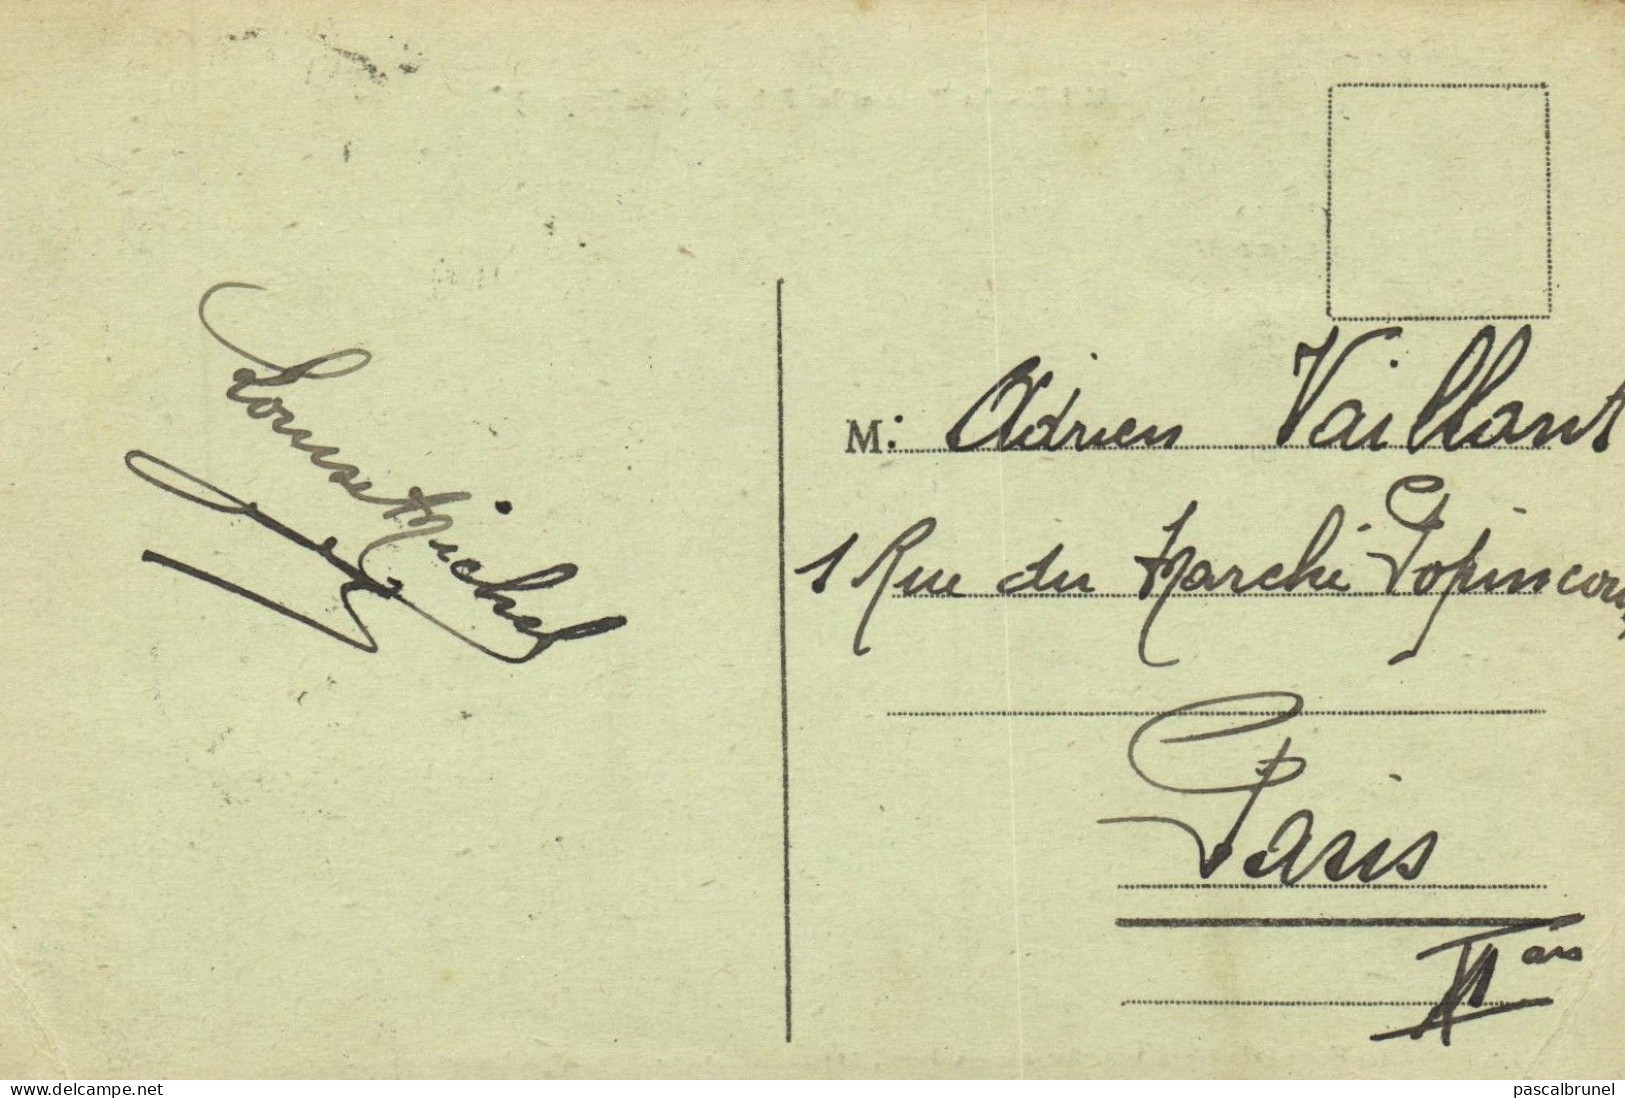 Louise Michel
M: Adrien Vaillant
1 Rue du Marché Popincourt
Paris
www.delcampe.net
pascalbrunel